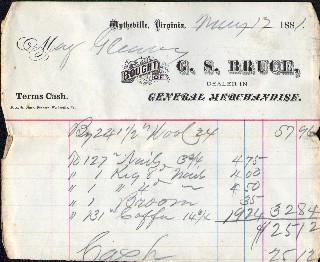 Wytheville, Virginia, May 12 1881.
May
BOUGHT OF
G. S. BRUCE,
DEALER IN
GENERAL MERCHANDISE.
Terms Cash.
By 241 1/2 " Wool 24 57 96
To 127 " Nails 3 3/4 4.75
" 1 Keg 8d Nails 4.00
" 1 " 4d " 4.50
" 1 Broom 35
" 131 " Coffee 14 3/4 1924 3284
$2512
Cash 2512